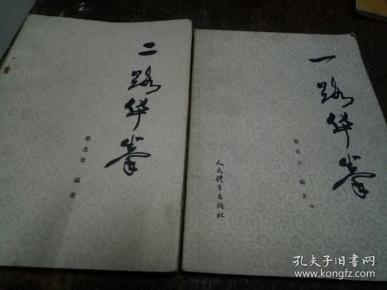 二路华拳
编著
一路华拳
编著
人民体育出版社
孔夫子旧书网